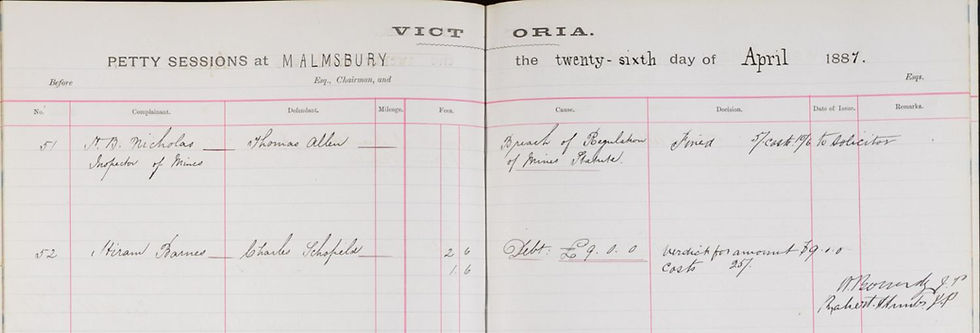 VICTORIA.
PETTY SESSIONS at MALMSBURY the twenty-sixth day of April 1887.
Before Esq., Chairman, and Esqs.
No. Complainant. Defendant. Mileage. Fees. Cause. Decision. Date of Issue. Remarks.
51 B. Nicholas Thomas Allen Breach of Regulation Fined 5/ costs 10/6 to Solicitor
Inspector of Mines of Mines Statute.
52 Hiram Barnes Charles Schofield 2 6 Debt: £9.0.0 verdict for amount £9.0.0
1. 6 costs 25/.
J.P
Robert J.P